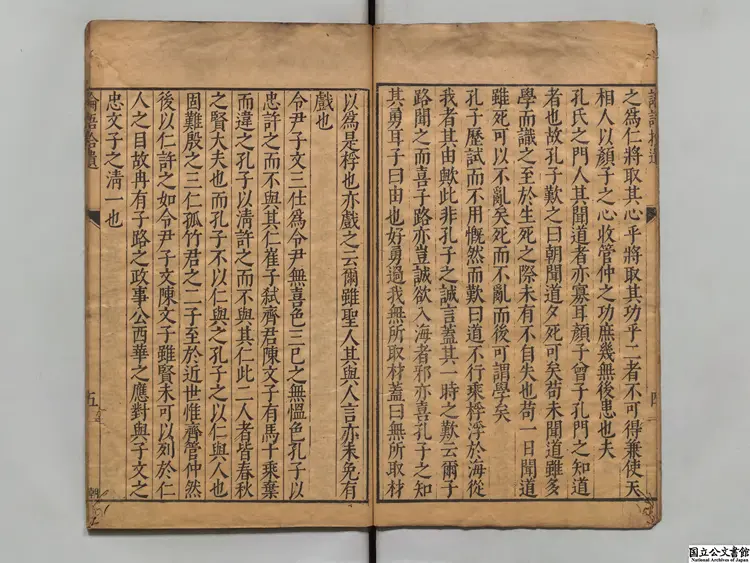 之爲仁將取其心乎將取其功乎二者不可得兼使天
相人以顏子之心收管仲之功庶幾無後患也夫
孔氏之門人其聞道者亦寡耳顏子曾子孔門之知道
者也故孔子歎之曰朝聞道夕死可矣苟未聞道雖多
學而識之至於生死之際未有不自失也苟一日聞道
雖死可以不亂矣死而不亂而後可謂學矣
孔子歷試而不用慨然而歎曰道不行乘桴浮於海從
我者其由歟此非孔子之誠言蓋其一時之歎云爾子
路聞之而喜子路亦豈誠欲入海者邪亦喜孔子之知
其勇耳子曰由也好勇過我無所取材蓋曰無所取材
以爲是桴也亦戲之云爾雖聖人其與人言亦未免有
戲也
令尹子文三仕爲令尹無喜色三已之無慍色孔子以
忠許之而不與其仁崔子弒齊君陳文子有馬十乘棄
而違之孔子以清許之而不與其仁此二人者皆春秋
之賢大夫也而孔子不以仁與之孔子之以仁與人也
固難殷之三仁孤竹君之二子至於近世惟齊管仲然
後以仁許之如令尹子文陳文子雖賢未可以列於仁
人之目故冉有子路之政事公西華之應對與子文之
忠文子之清一也
論語拾遺
五
国立公文書館
National Archives of Japan